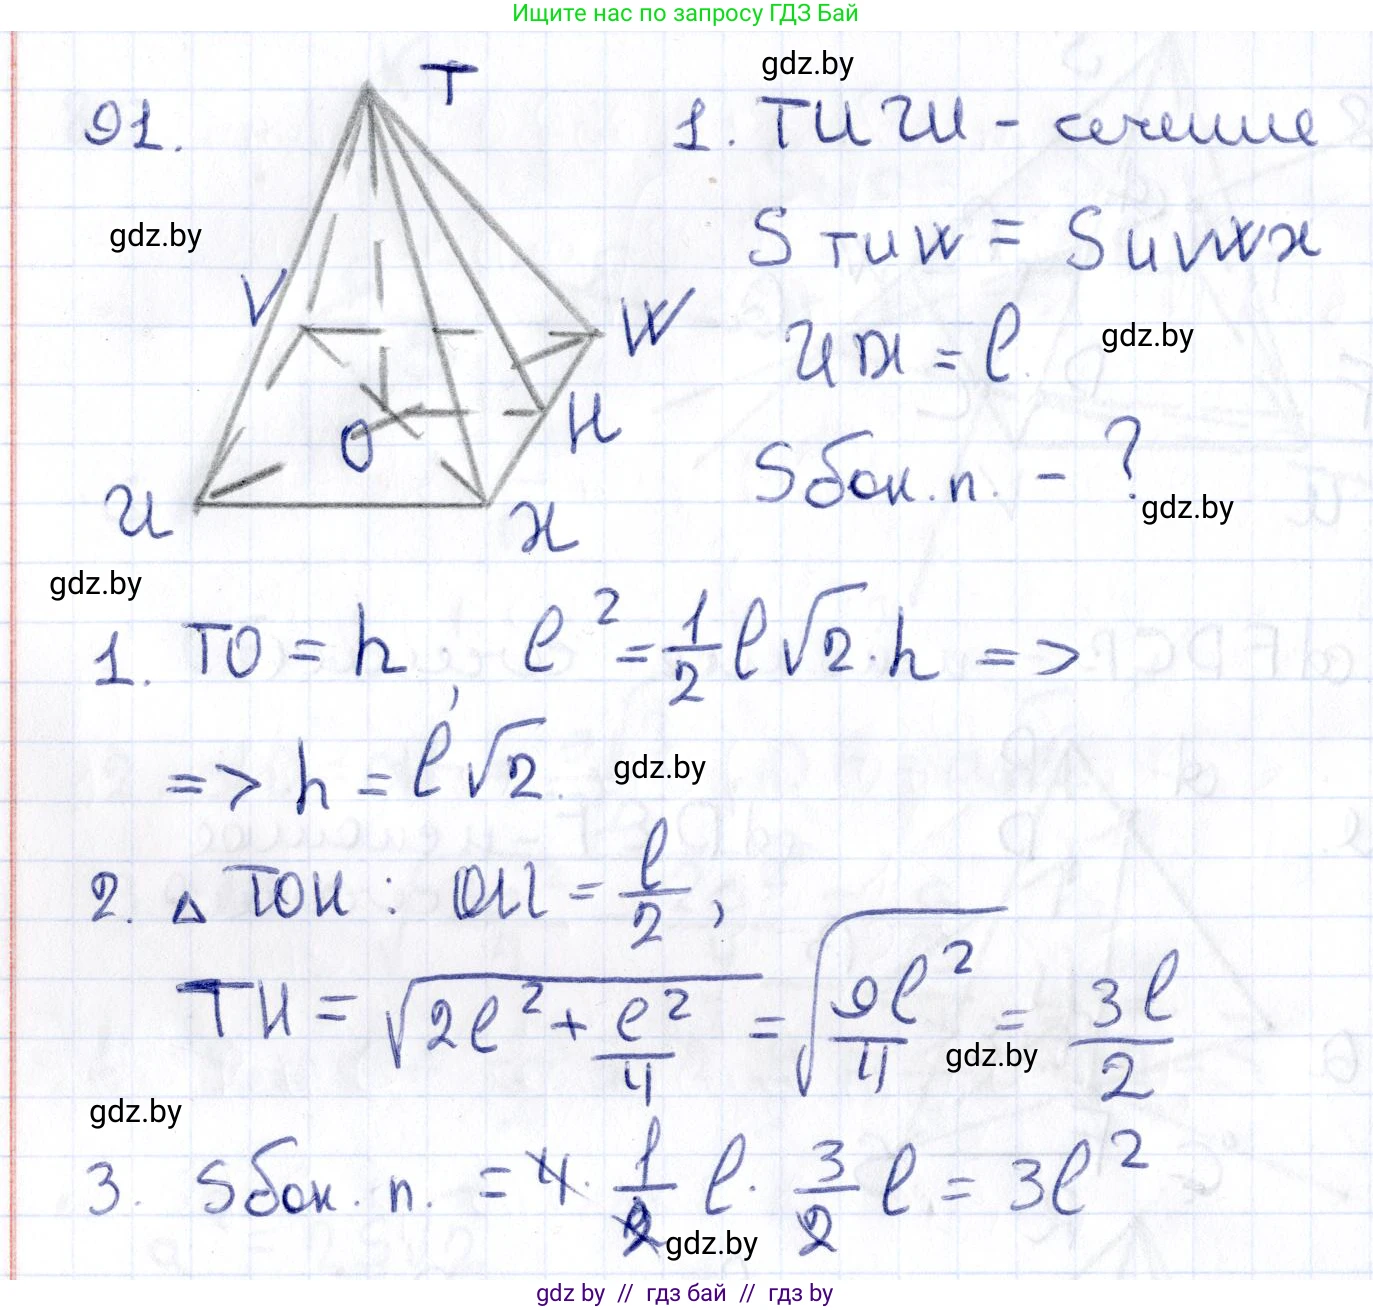 Ищите нас по запросу ГДЗ Бай
91.
T
V
W
O
H
U
X
gdz.by
gdz.by
1. TUW - сечение
S TUW = S UVWX
UX = l
gdz.by
Sбок. п. - ?
gdz.by
gdz.by
1. TO = h, l² = 1/2 l√2 · h =>
=> h = l√2.
gdz.by
2. △ TOH : OH = l/2,
TH = √(2l² + l²/4) = √(9l²/4) = 3l/2
gdz.by
gdz.by
3. Sбок. п. = 4 · 1/2 l · 3/2 l = 3l²
gdz.by
gdz by // гдз бай // гдз by